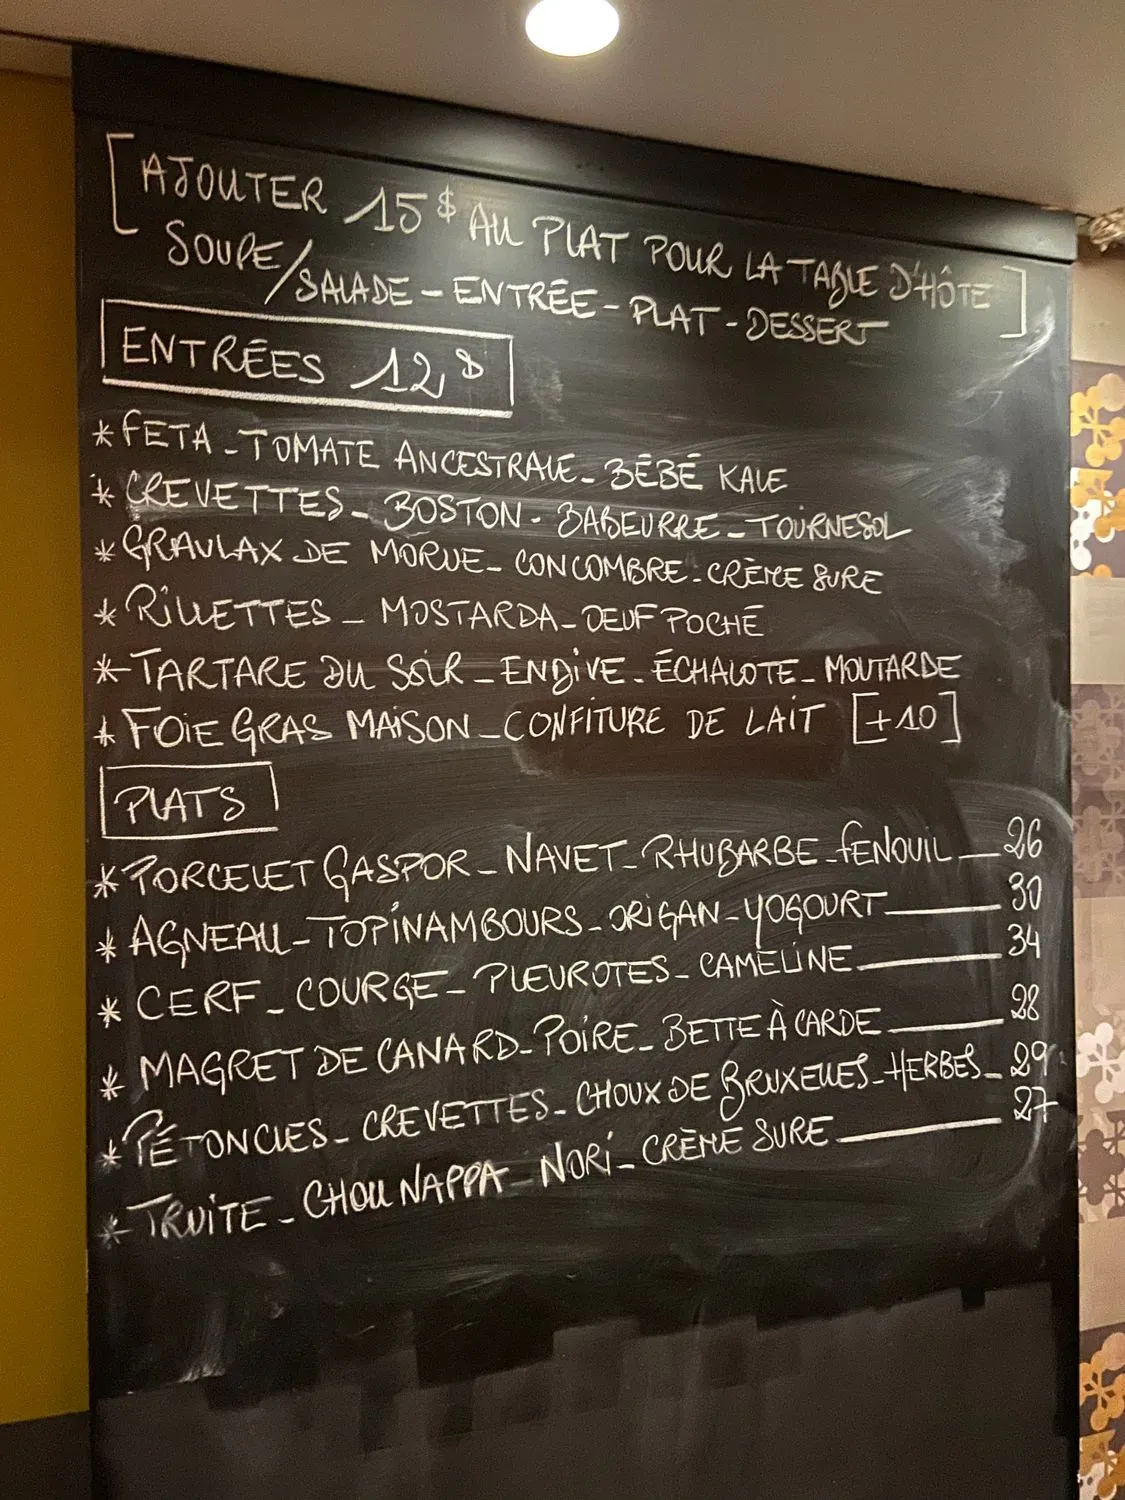 [AJOUTER 15$ AU PLAT POUR LA TABLE D'HÔTE]
SOUPE/SALADE - ENTRÉE - PLAT - DESSERT
ENTRÉES 12$
* FETA - TOMATE ANCESTRALE - BÉBÉ KALE
* CREVETTES - BOSTON - BABEURRE - TOURNESOL
* GRAVLAX DE MORUE - CONCOMBRE - CRÈME SURE
* RILLETTES - MOSTARDA - OEUF POCHÉ
* TARTARE DU SOIR - ENDIVE - ÉCHALOTE - MOUTARDE
* FOIE GRAS MAISON - CONFITURE DE LAIT [+10]
PLATS
* PORCELET GASPOR - NAVET - RHUBARBE - FENOUIL — 26
* AGNEAU - TOPINAMBOURS - ORIGAN - YOGOURT — 30
* CERF - COURGE - PLEUROTES - CAMELINE — 34
* MAGRET DE CANARD - POIRE - BETTE À CARDE — 28
* PÉTONCLES - CREVETTES - CHOUX DE BRUXELLES - HERBES - 29
* TRUITE - CHOU NAPPA - NORI - CRÈME SURE — 27